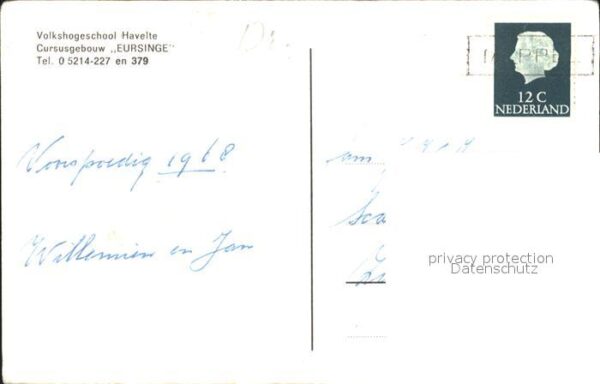 Volkshogeschool Havelte
Cursusgebouw „EURSINGE"
Tel. 0 5214-227 en 379
12 C
NEDERLAND
Voorspoedig 1968
Willemien en Jan
privacy protection
Datenschutz